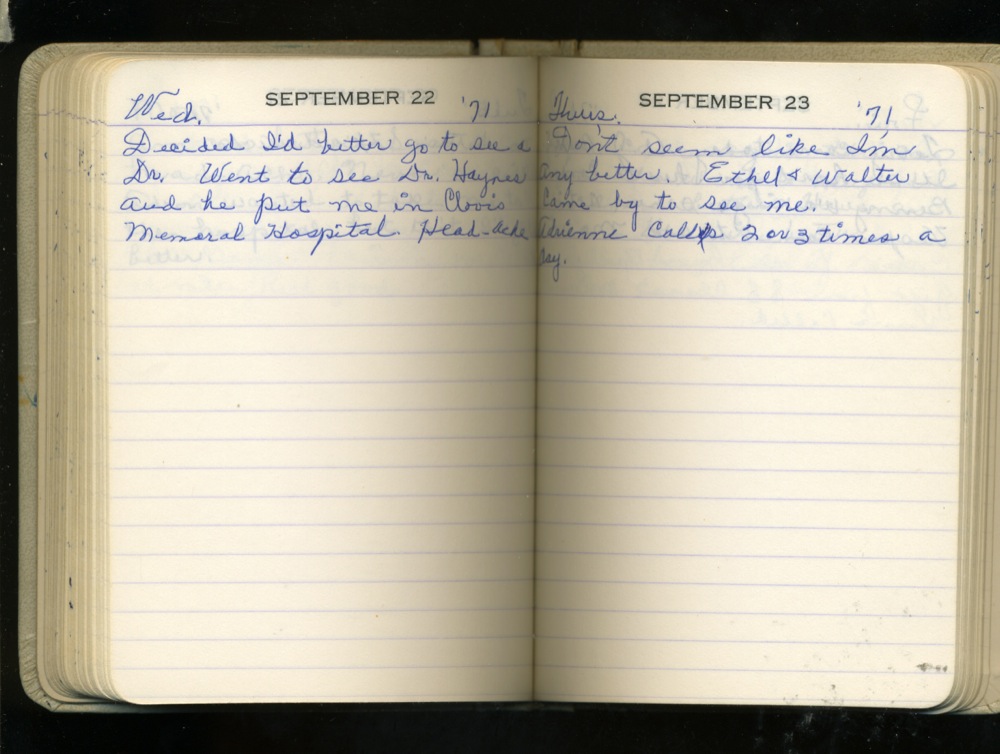 SEPTEMBER 22
Wed. '71
Decided I'd better go to see a
Dr. Went to see Dr. Haynes
and he put me in Clovis
Memoral Hospital. Head-ache
SEPTEMBER 23
Thurs. '71
Don't seem like I'm
any better. Ethel & Walter
came by to see me.
Adrienne calls 2 or 3 times a
day.